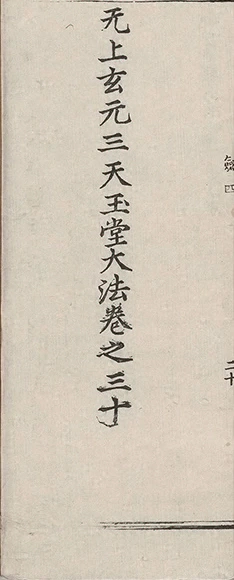 四
二十
无上玄元三天玉堂大法卷之三十